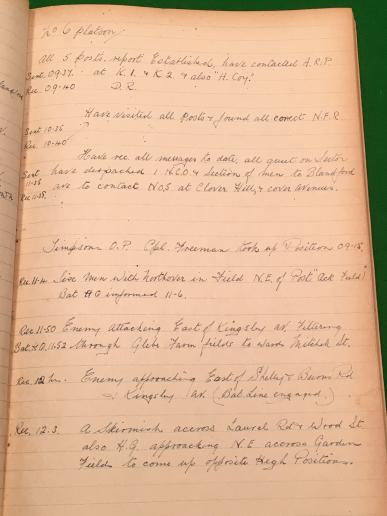 No 6 platoon
All 5 Posts. report Established, have contacted A.R.P.
Sent 09.37. at K.1. & K 2 & also "H. Coy."
Rec. 09.40 D.R.
Have visited all Posts & found all correct N.F.R.
Sent 10.36
Rec. 10.40
Have rec. all messages to date, all quiet on Sector
Sent 11.36 have despatched 1 N.C.O & section of men to Blandford
Rec 11.38. ave to contact No 5 at Clover Hill, & cover avenues.
Simpsons O.P. Cpl. Freeman took up Position 09.15.
Rec. 11.4. Five Men with Northover in Field N.E. of Post "Ack Field"
Bat HQ informed 11-6.
Rec. 11.50 Enemy Attacking East of Kingsley av. Filtering
Bat. H.Q. 11.52 through Glebe Farm fields to wards Mitchell St.
Rec. 12 hrs. Enemy approaching East of Shelley & Burns Rd
& Kingsley Av. (Bat Line engaged)
Rec. 12.3. A Skirmish accross Laurel Rd & Wood St
also H.G. approaching N.E accross Garden
Fields to come up opposite High Positions.